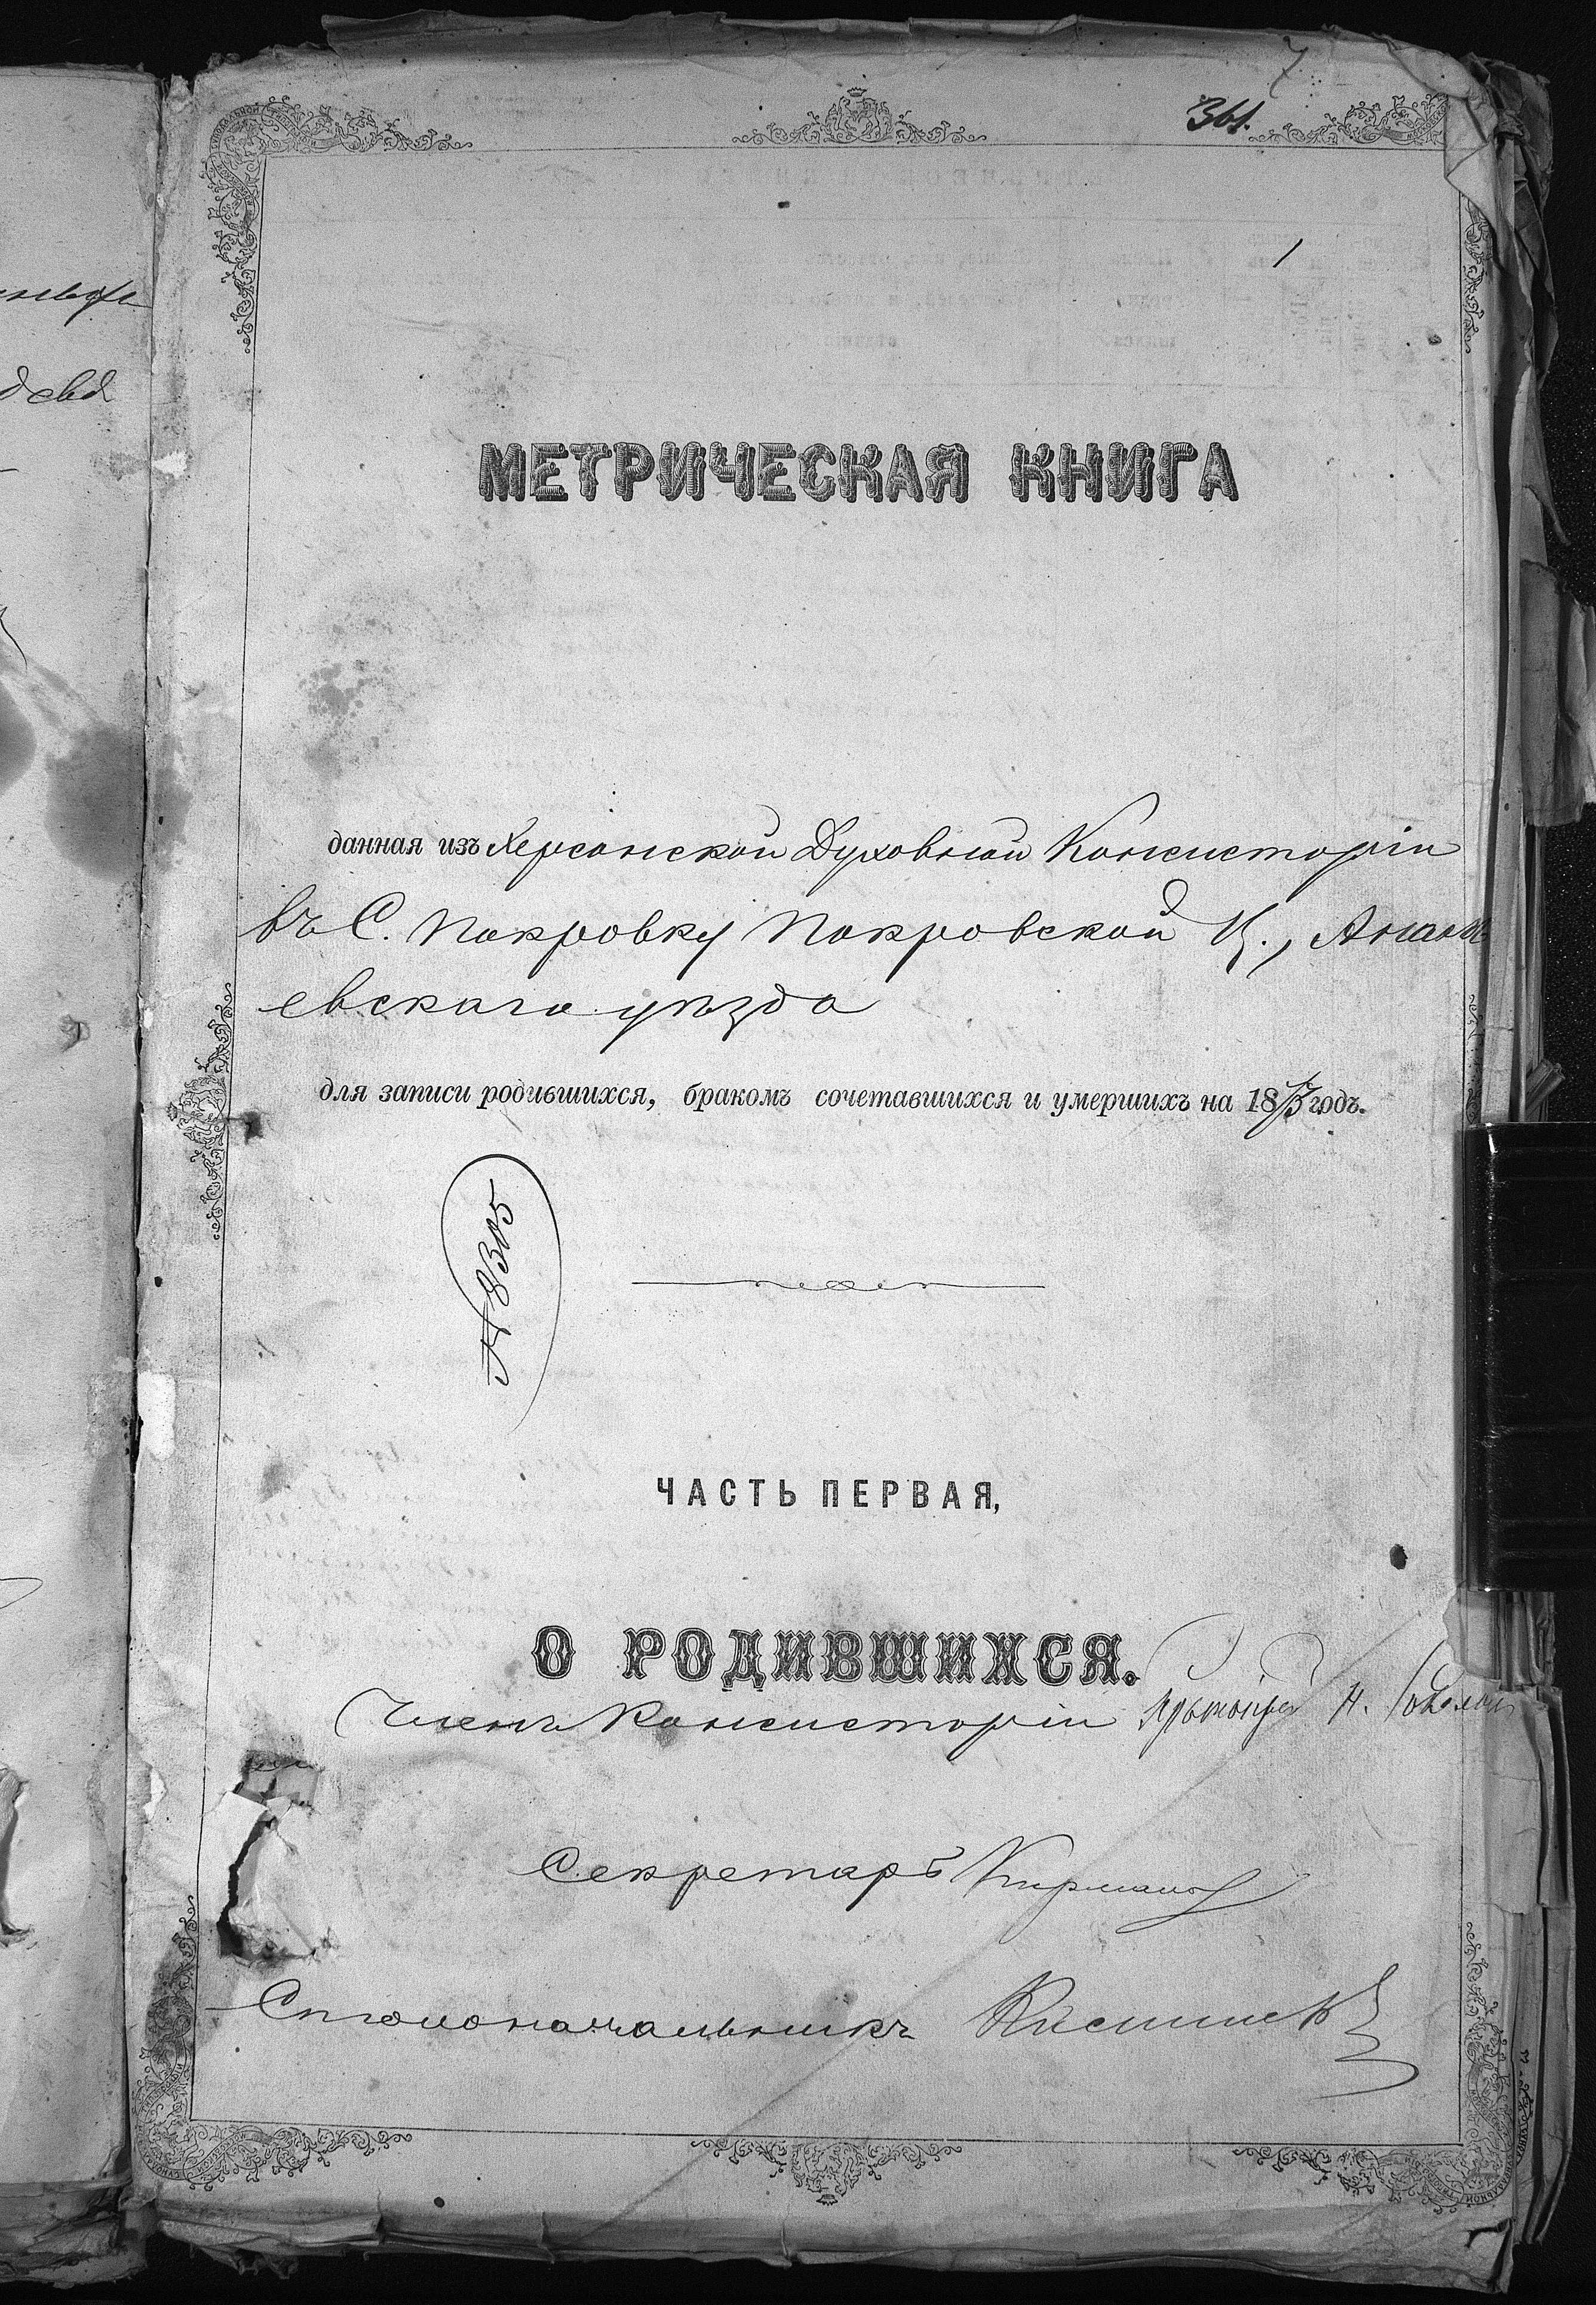 7
361.
1
МЕТРИЧЕСКАЯ КНИГА
данная изъ Херсонской Духовной Консисторіи
въ С. Покровку Покровской Ц., Анань
евскаго уѣзда
для записи родившихся, бракомъ сочетавшихся и умершихъ на 1873 годъ.
№ 8305
ЧАСТЬ ПЕРВАЯ,
О РОДИВШИХСЯ.
Членъ Консисторіи Протоіерей Н.
Секретарь
Столоначальникъ